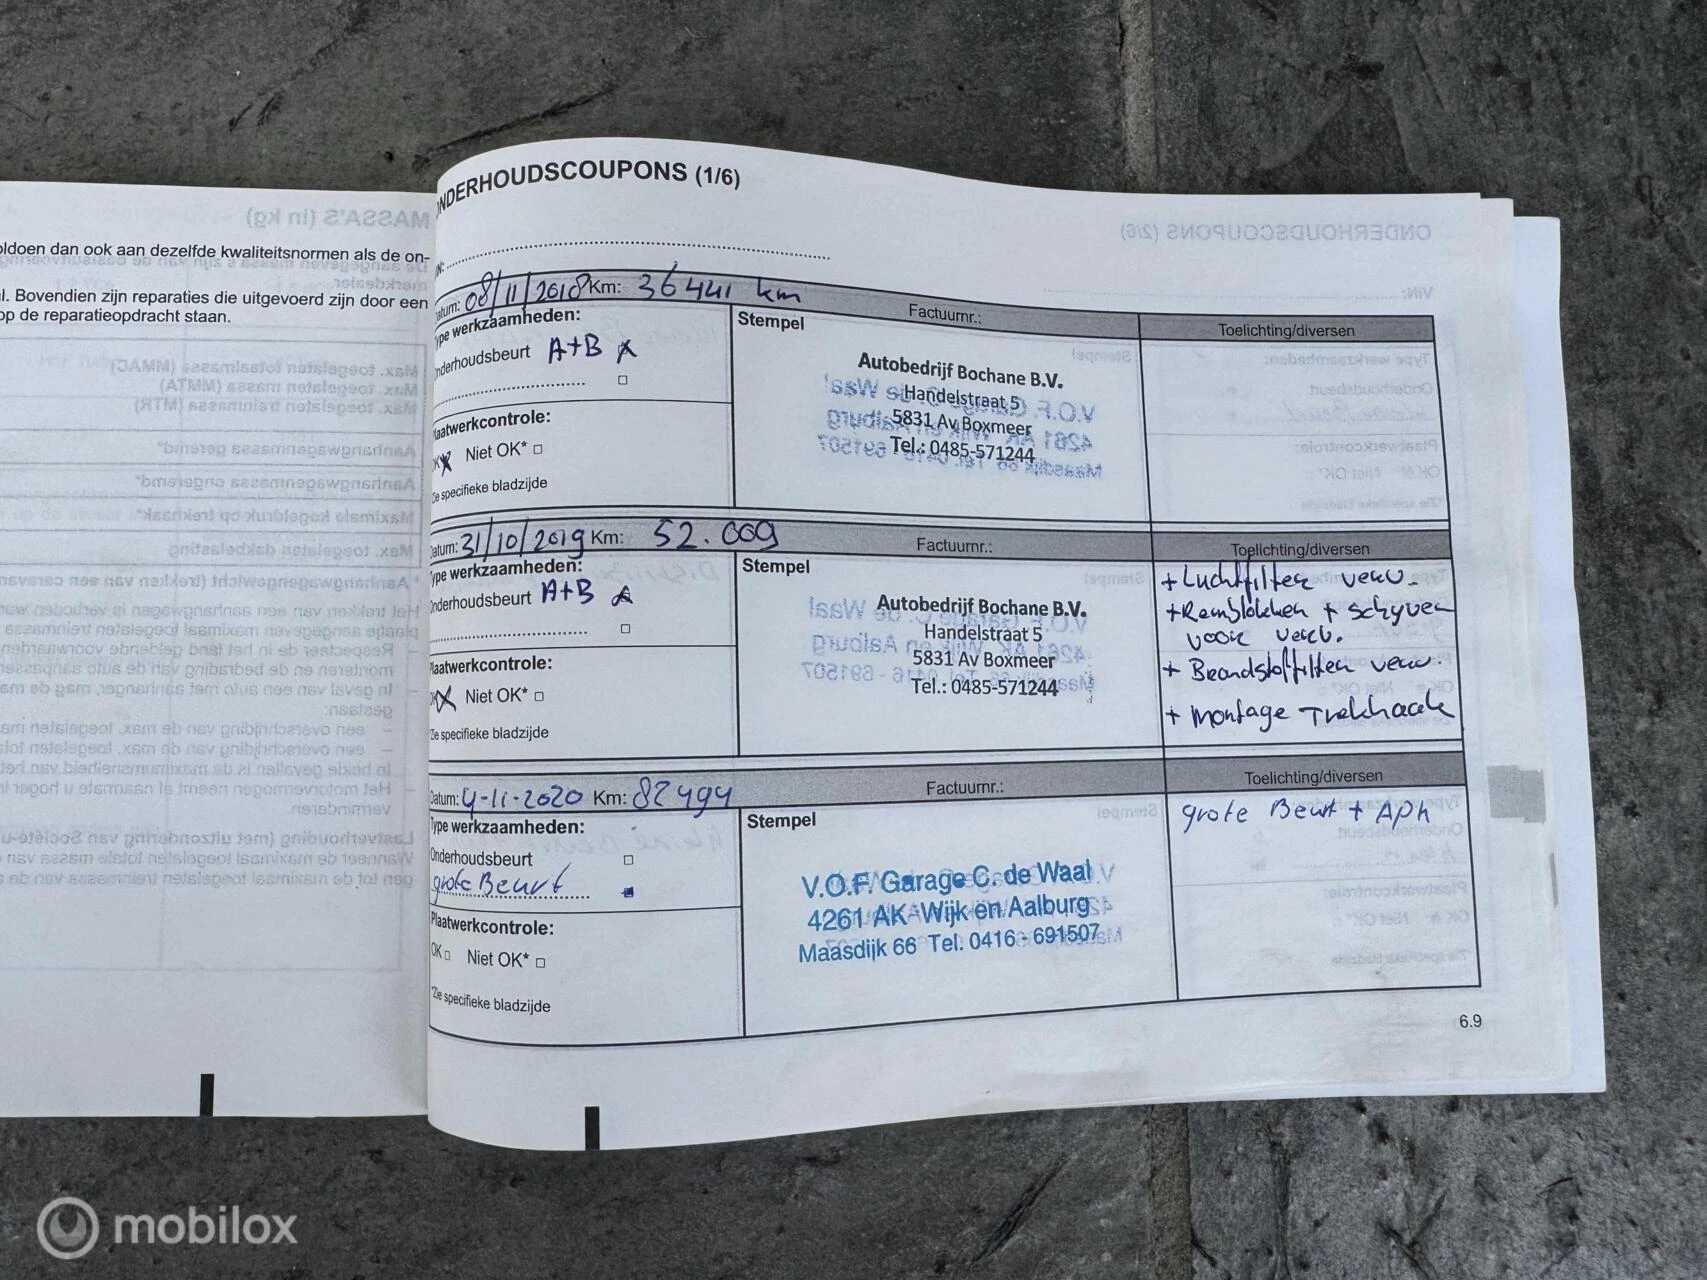 oldoen dan ook aan dezelfde kwaliteitsnormen als de on-
l. Bovendien zijn reparaties die uitgevoerd zijn door een
op de reparatieopdracht staan.
ONDERHOUDSCOUPONS (1/6)
Datum: 08/11/2018 Km: 36441 km
Factuurnr.:
Toelichting/diversen
Type werkzaamheden:
Onderhoudsbeurt A+B
Plaatwerkcontrole:
OK Niet OK*
*Zie specifieke bladzijde
Stempel
Autobedrijf Bochane B.V.
Handelstraat 5
5831 Av Boxmeer
Tel.: 0485-571244
Datum: 31/10/2019 Km: 52.009
Factuurnr.:
Toelichting/diversen
Type werkzaamheden:
Onderhoudsbeurt A+B
Plaatwerkcontrole:
OK Niet OK*
*Zie specifieke bladzijde
Stempel
Autobedrijf Bochane B.V.
Handelstraat 5
5831 Av Boxmeer
Tel.: 0485-571244
+ Luchtfilter verv.
+ Remblokken + schyven
voor verv.
+ Brandstoffilter verv.
+ Montage Trekhaak
Datum: 4-11-2020 Km: 82494
Factuurnr.:
Toelichting/diversen
Type werkzaamheden:
Onderhoudsbeurt
grote Beurt
Plaatwerkcontrole:
OK Niet OK*
*Zie specifieke bladzijde
Stempel
V.O.F. Garage C. de Waal
4261 AK Wijk en Aalburg
Maasdijk 66 Tel. 0416 - 691507
grote Beurt + APK
6.9
mobilox